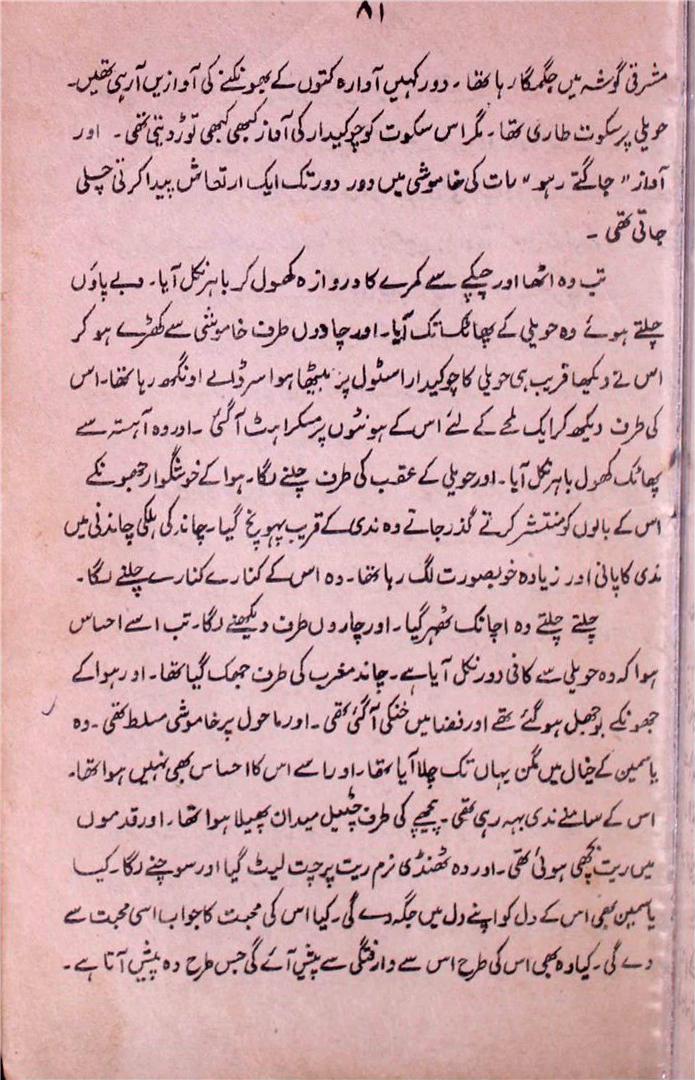 ۸۱
مشرقی گوشہ میں جگمگا رہا تھا۔ دور کہیں آوارہ کتوں کے بھونکنے کی آوازیں آرہی تھیں۔
حویلی پر سکوت طاری تھا۔ مگر اس سکوت کو چوکیدار کی آواز کبھی کبھی توڑ دیتی تھی۔ اور
آواز "جاگتے رہو" رات کی خاموشی میں دور دور تک ایک ارتعاش پیدا کرتی چلی
جاتی تھی۔
تب وہ اٹھا اور چپکے سے کمرے کا دروازہ کھول کر باہر نکل آیا۔ دبے پاؤں
چلتے ہوئے وہ حویلی کے پھاٹک تک آیا۔ اور چاروں طرف خاموشی سے کھڑے ہو کر
اس نے دیکھا قریب ہی حویلی کا چوکیدار اسٹول پر بیٹھا ہوا سر ڈالے اونگھ رہا تھا۔ اس
کی طرف دیکھ کر ایک لمحے کے لئے اس کے ہونٹوں پر مسکراہٹ آگئی۔ اور وہ آہستہ سے
پھاٹک کھول باہر نکل آیا۔ اور حویلی کے عقب کی طرف چلنے لگا۔ ہوا کے خوشگوار جھونکے
اس کے بالوں کو منتشر کرتے گذر جاتے وہ ندی کے قریب پہونچ گیا۔ چاند کی ہلکی چاندنی میں
ندی کا پانی اور زیادہ خوبصورت لگ رہا تھا۔ وہ اس کے کنارے کنارے چلنے لگا۔
چلتے چلتے وہ اچانک ٹھہر گیا۔ اور چاروں طرف دیکھنے لگا۔ تب اسے احساس
ہوا کہ وہ حویلی سے کافی دور نکل آیا ہے۔ چاند مغرب کی طرف جھک گیا تھا۔ اور ہوا کے
جھونکے بوجھل ہو گئے تھے اور فضا میں خنکی آگئی تھی۔ اور ماحول پر خاموشی مسلط تھی۔ وہ
یاسمین کے خیال میں مگن یہاں تک چلا آیا تھا۔ اور اسے اس کا احساس بھی نہیں ہوا تھا۔
اس کے سامنے ندی بہہ رہی تھی۔ پیچھے کی طرف چٹیل میدان پھیلا ہوا تھا۔ اور قدموں
میں ریت بچھی ہوئی تھی۔ اور وہ ٹھنڈی نرم ریت پر چت لیٹ گیا اور سوچنے لگا۔ کیا
یاسمین بھی اس کے دل کو اپنے دل میں جگہ دے گی۔ کیا اس کی محبت کا جواب اسی محبت سے
دے گی۔ کیا وہ بھی اس کی طرح اس سے وارفتگی سے پیش آئے گی جس طرح وہ پیش آتا ہے۔